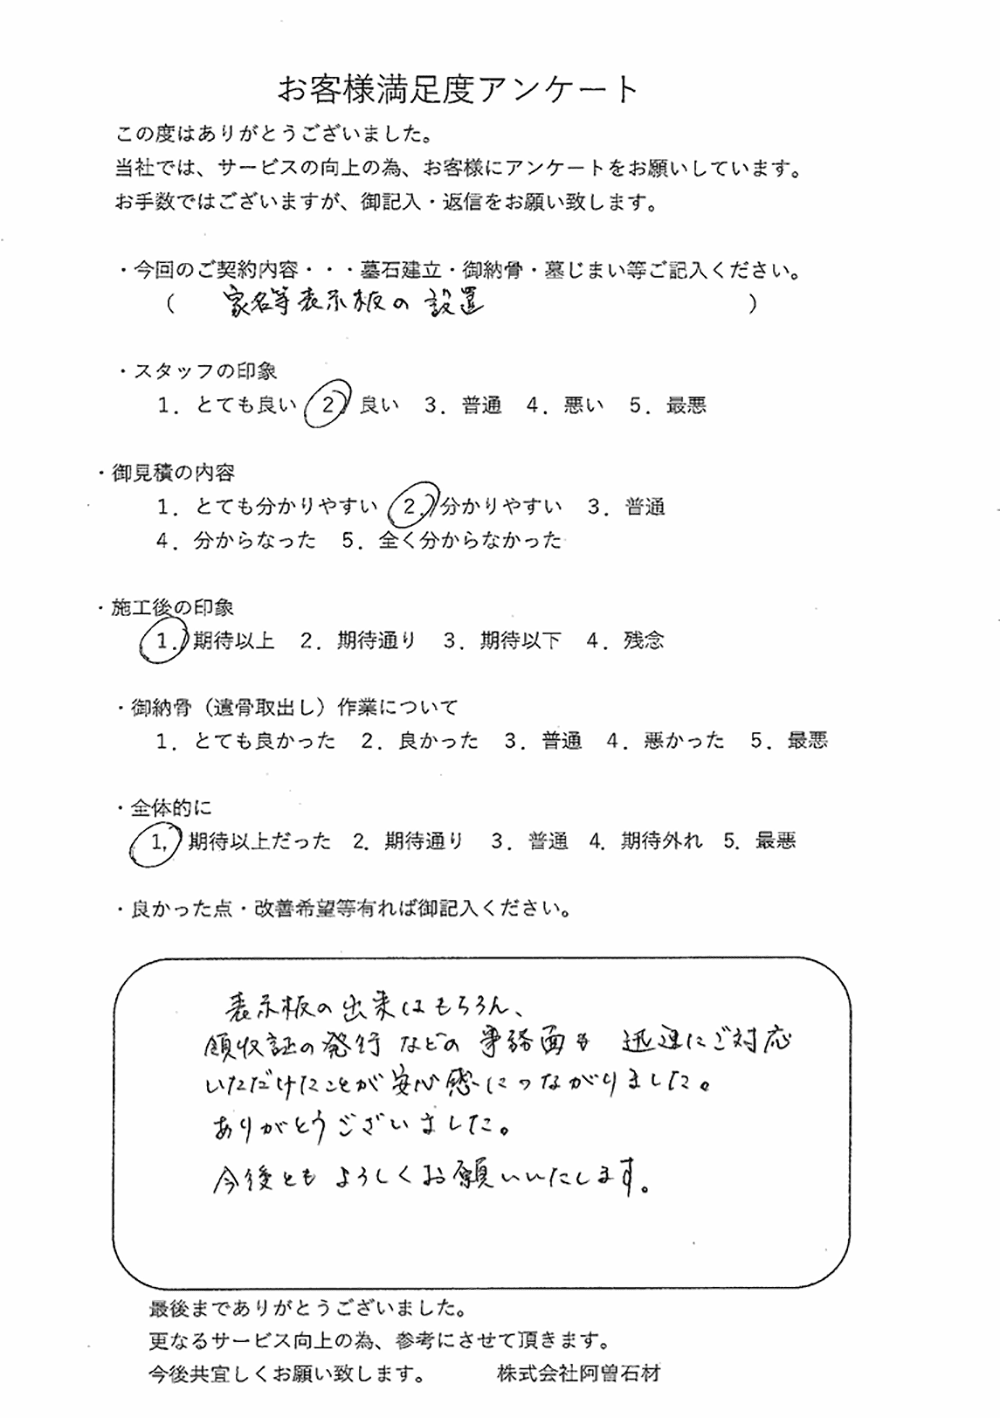 お客様満足度アンケート
この度はありがとうございました。
当社では、サービスの向上の為、お客様にアンケートをお願いしています。
お手数ではございますが、御記入・返信をお願い致します。
・今回のご契約内容・・・墓石建立・御納骨・墓じまい等ご記入ください。
（　家名等表示板の設置　）
・スタッフの印象
1．とても良い　2．良い　3．普通　4．悪い　5．最悪
・御見積の内容
1．とても分かりやすい　2．分かりやすい　3．普通
4．分からなった　5．全く分からなかった
・施工後の印象
1．期待以上　2．期待通り　3．期待以下　4．残念
・御納骨（遺骨取出し）作業について
1．とても良かった　2．良かった　3．普通　4．悪かった　5．最悪
・全体的に
1，期待以上だった　2．期待通り　3．普通　4．期待外れ　5．最悪
・良かった点・改善希望等有れば御記入ください。
表示板の出来はもちろん、
領収証の発行などの事務面も迅速にご対応
いただけたことが安心感につながりました。
ありがとうございました。
今後ともよろしくお願いいたします。
最後までありがとうございました。
更なるサービス向上の為、参考にさせて頂きます。
今後共宜しくお願い致します。　株式会社阿曽石材